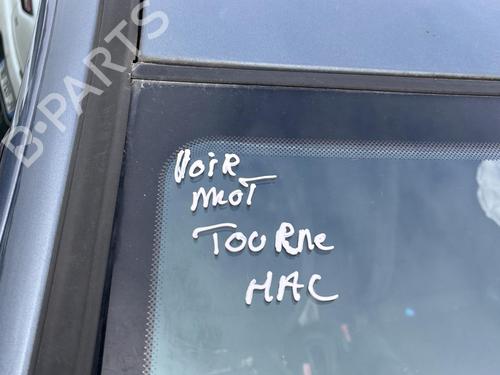 B-PARTS
VOIR
MOT
TOURNE
HAC